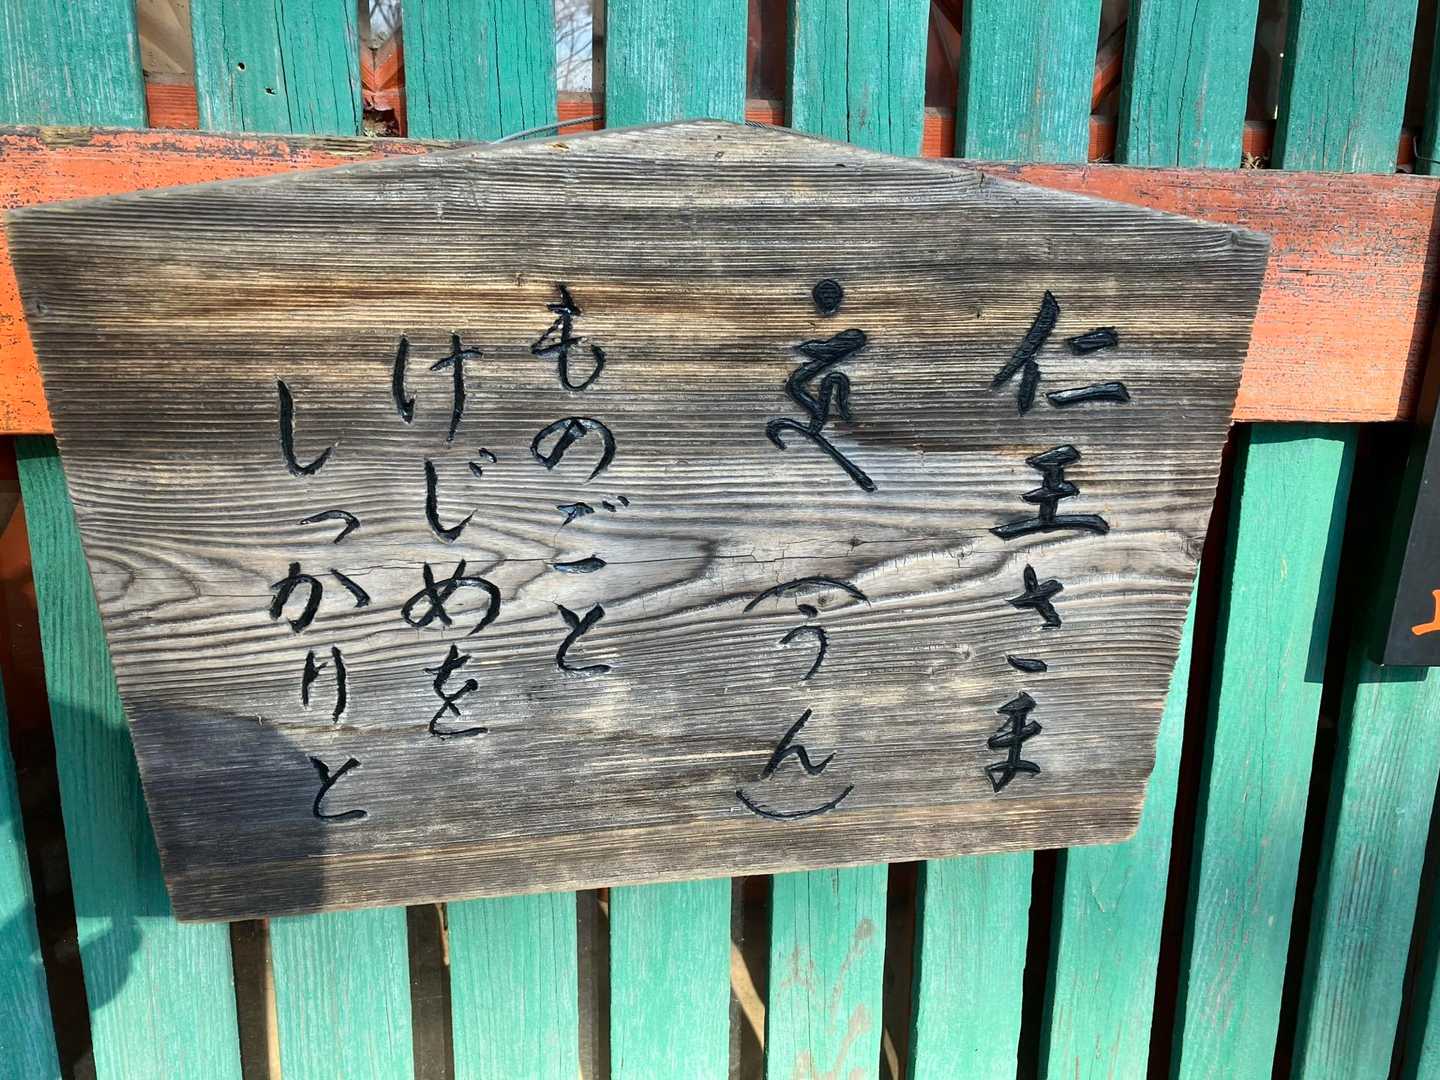 仁王さま
(うん)
ものごと
けじめを
しっかりと